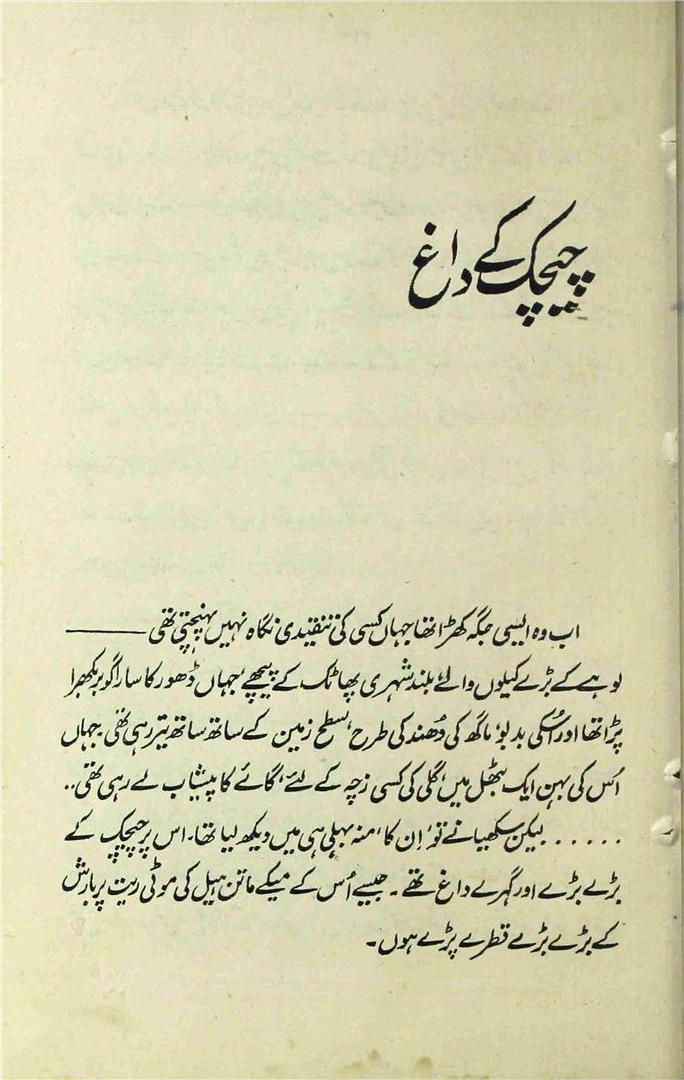 چیچک کے داغ
اب وہ ایسی جگہ کھڑا تھا جہاں کسی کی تنقیدی نگاہ نہیں پہنچتی تھی ———
لوہے کے بڑے کیلوں والے، بلند شہری پھاٹک کے پیچھے، جہاں ڈھور کا سارا گوبر بکھرا
پڑا تھا اور اُسکی بدبو، ماگھ کی دُھند کی طرح، سطح زمین کے ساتھ ساتھ تیر رہی تھی۔ جہاں
اُس کی بہن ایک بٹھل میں، گلی کی کسی زچہ کے لئے، گائے کا پیشاب لے رہی تھی..
...... لیکن سکھیا نے تو، اِن کا، منہ پہلی ہی میں دیکھ لیا تھا۔ اس پر چیچک کے
بڑے بڑے اور گہرے داغ تھے۔ جیسے اُس کے میکے ماتن ہیل کی موٹی ریت پر بارش
کے بڑے بڑے قطرے پڑے ہوں۔